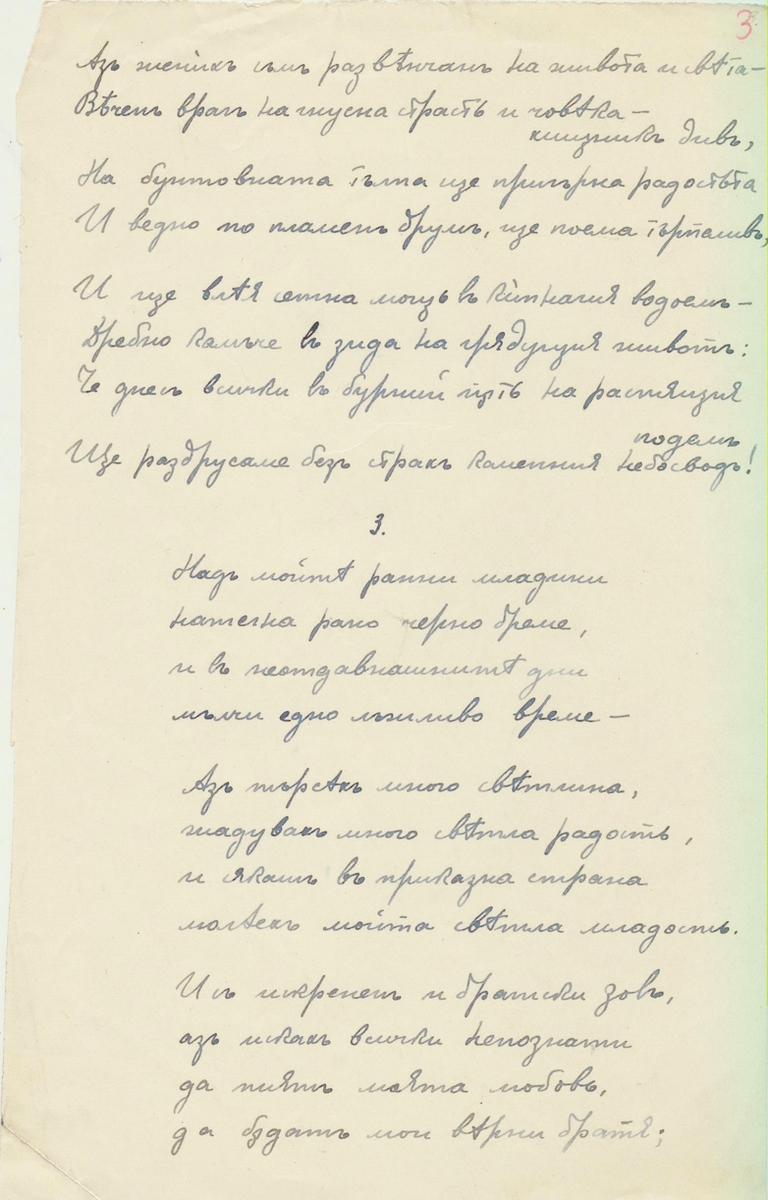 3
Азъ женихъ съмъ развѣнчанъ на живота и свѣта—
Вѣченъ врагъ на гнусна страсть и човѣка—
хищникъ дивъ,
На бунтовната тълпа ще пригърна радостьта
И ведно по пламенъ друмъ, ще поема търпеливъ,
И ще влѣя сетна мощь въ водоемъ—
Дребно камъче въ зида на грядущия животъ:
Че днесъ всички въ бурний пѫть на растящия
подемъ
Ще раздрусаме безъ страхъ каменния небосводъ!
3.
Надъ мойтѣ ранни младини
натегна рано черно бреме,
и въ неотдавнашнитѣ дни
мълчи едно лъжливо време —
Азъ търсѣхъ много свѣтлина,
жадувахъ много свѣтла радость,
и сякашъ въ приказна страна
молѣхъ мойта свѣтла младость.
И съ искренъ и братски зовъ,
азъ искахъ всички непознати
да пиятъ моята любовь,
да бѫдатъ мои вѣрни братя;